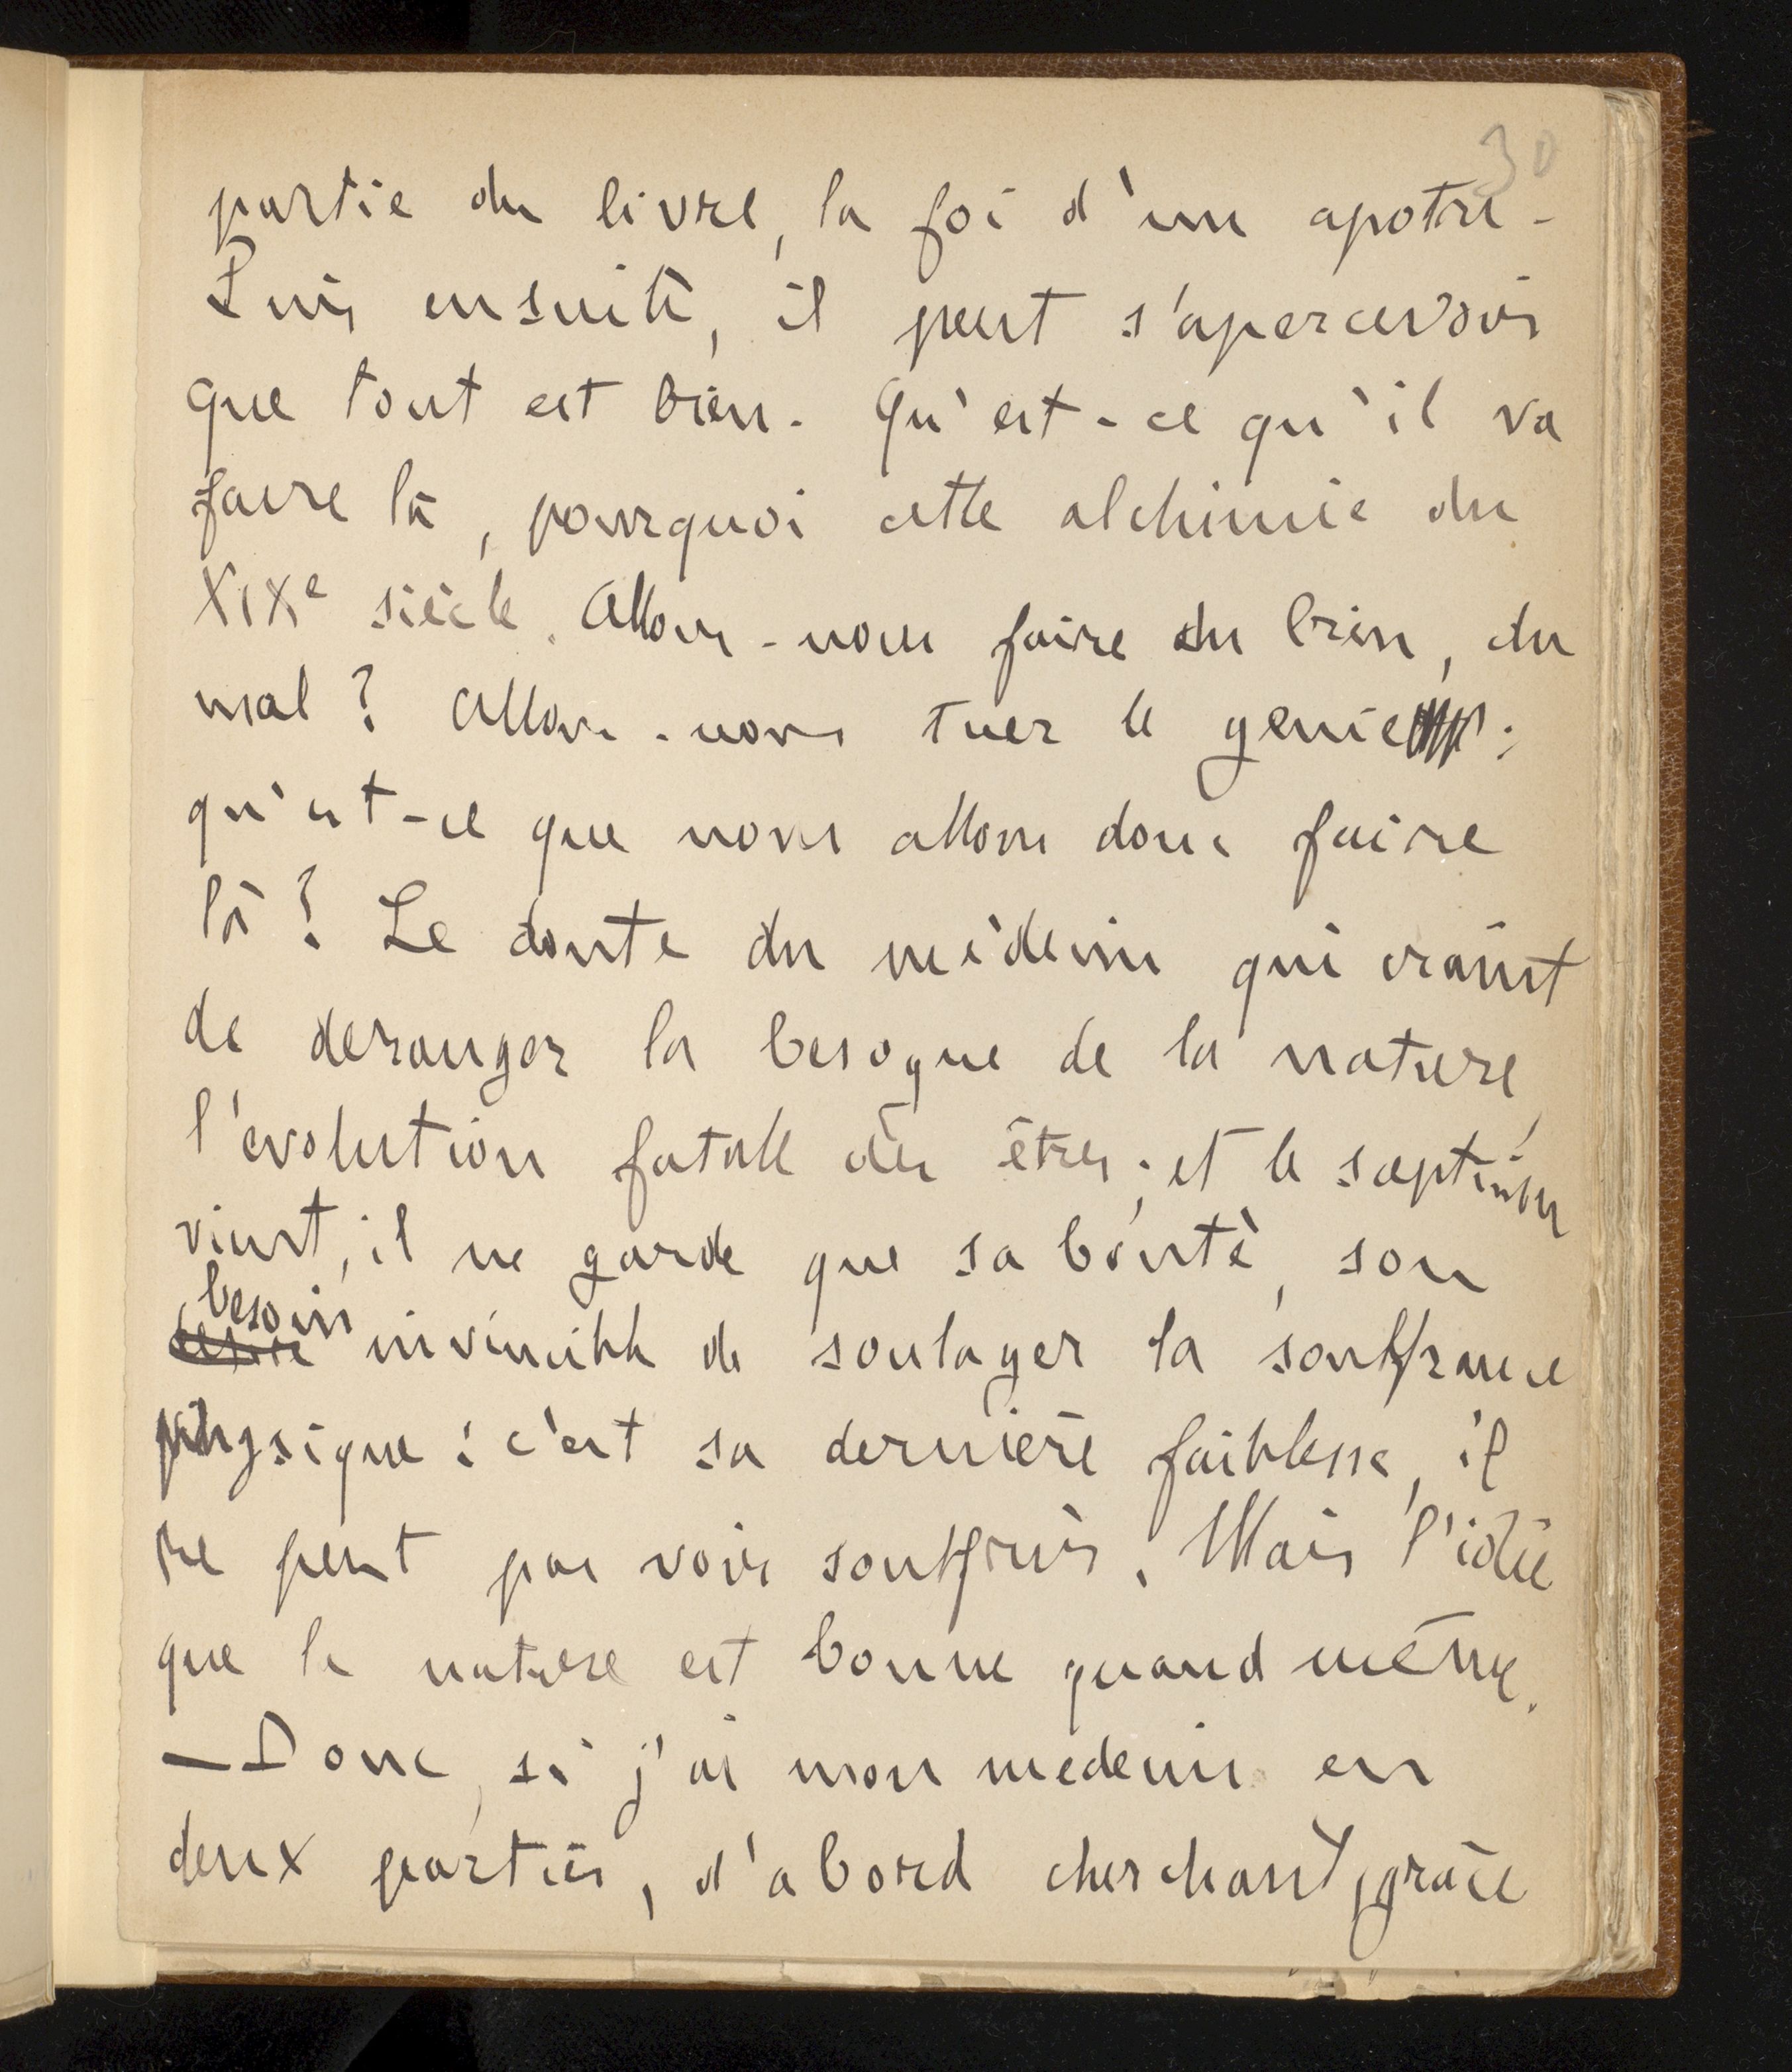 30
partie du livre, la foi d'un apotre.
Puis ensuite, il peut s'apercevoir
que tout est bien. Qu'est-ce qu'il va
faire là, pourquoi cette alchimie du
XIXe siècle. Allons-nous faire du bien, du
mal ? Allons-nous tuer le genie ;
qu'est-ce que nous allons donc faire
là ? Le doute du médecin qui craint
de deranger la besogne de la nature,
l'evolution fatale des êtres ; et le scepticisme
vient, il ne garde que sa bonté, son
besoin invincible de soulager la souffrance
physique : c'est sa dernière faiblesse, il
ne peut pas voir souffrir. Mais l'idée
que la nature est bonne quand même.
— Donc, si j'ai mon medecin en
deux parties, d'abord cherchant, grâce